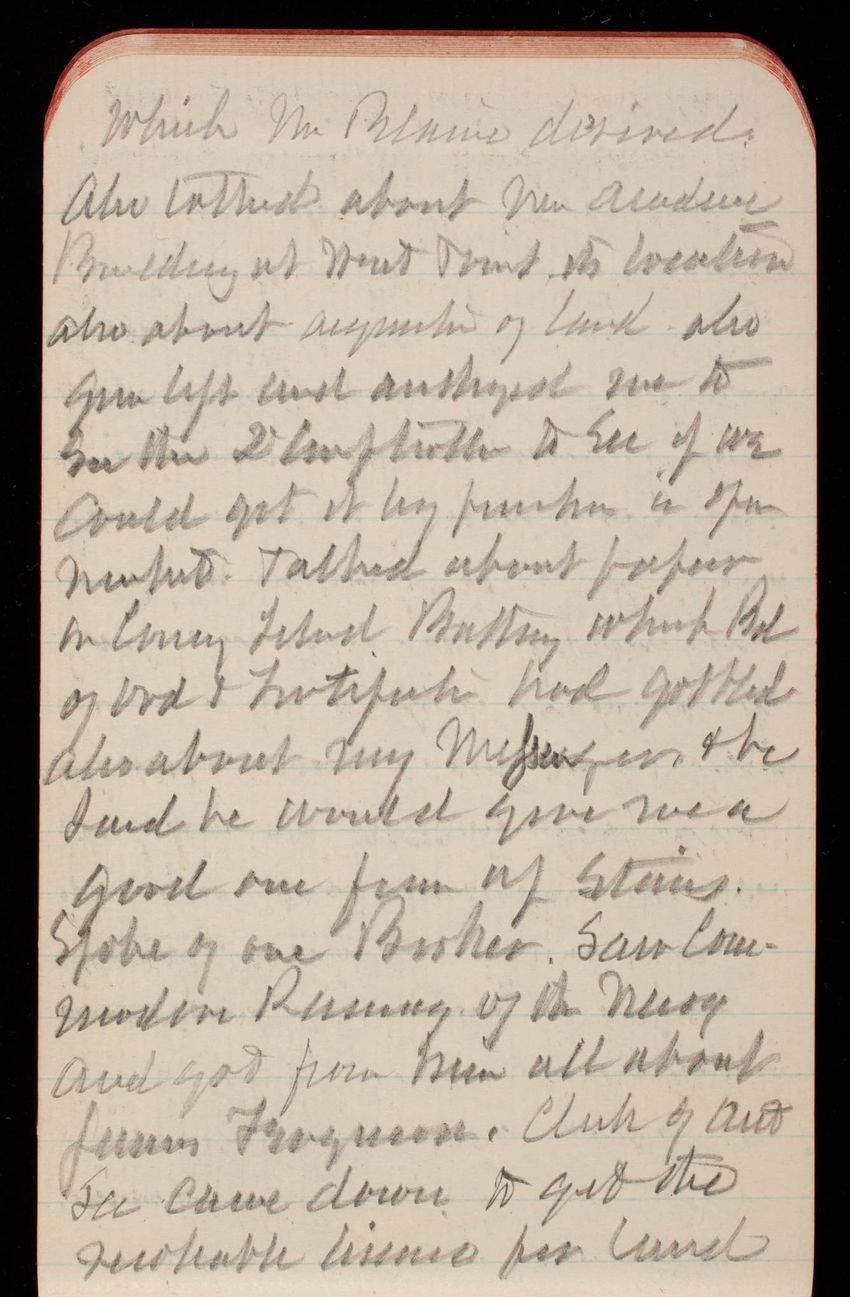 Which Mr Blaine desired.
Also talked about New Academic
Building at West Point its location
also about acquisition of land also
Gun lift and authorized me to
See the 2d Comptroller to See if we
Could get it by purchase in open
market. Talked about papers
on Coney Island Battery which Bd
of Ord & Fortification had gobbled
Also about my Messenger, & he
Said he would give me a
good one from up Stairs.
Spoke of one Booker. Saw Com-
modore Ramsay of the Navy
and got from him all about
James Ferguson. Clerk of
came down to get the
revokable license for land